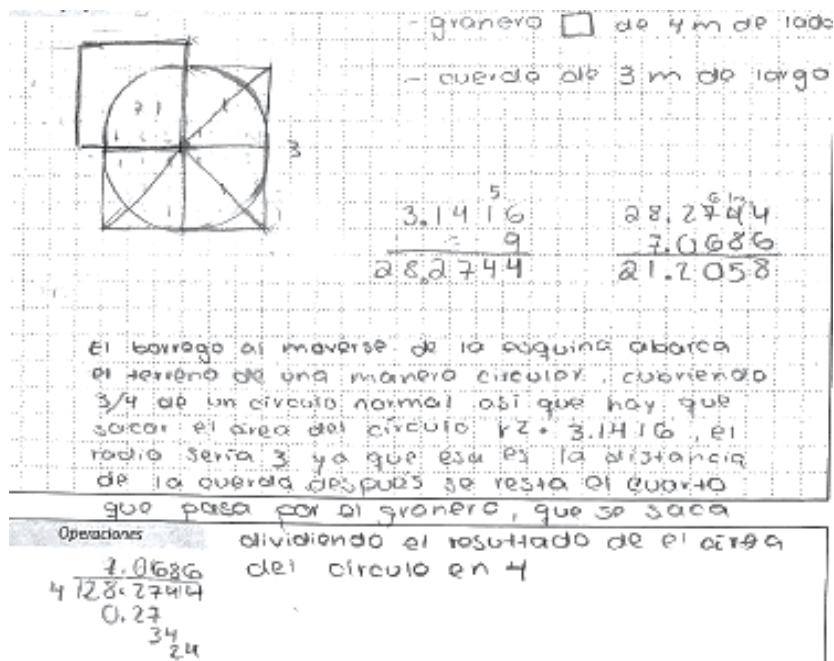 - granero □ de 4 m de lado
- cuerda de 3 m de largo
3
5
3.1416
9
28.2744
28.2744
7.0686
21.2058
El borrego al moverse de la esquina abarca
el terreno de una manera circular, cubriendo
3/4 de un circulo normal asi que hay que
sacar el area del circulo r2. 3.1416, el
radio seria 3 ya que esa es la distancia
de la cuerda despues se resta el cuarto
que pasa por el granero, que se saca
Operaciones
dividiendo el resultado de el area
del circulo en 4
7.0686
4 28.2744
0.27
34
24